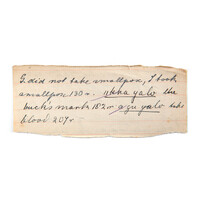 G. did not take smallpox, I took
smallpox 130 v. ukka yalo the
buck's mark 182 v a gu yalo take
blood 207 v